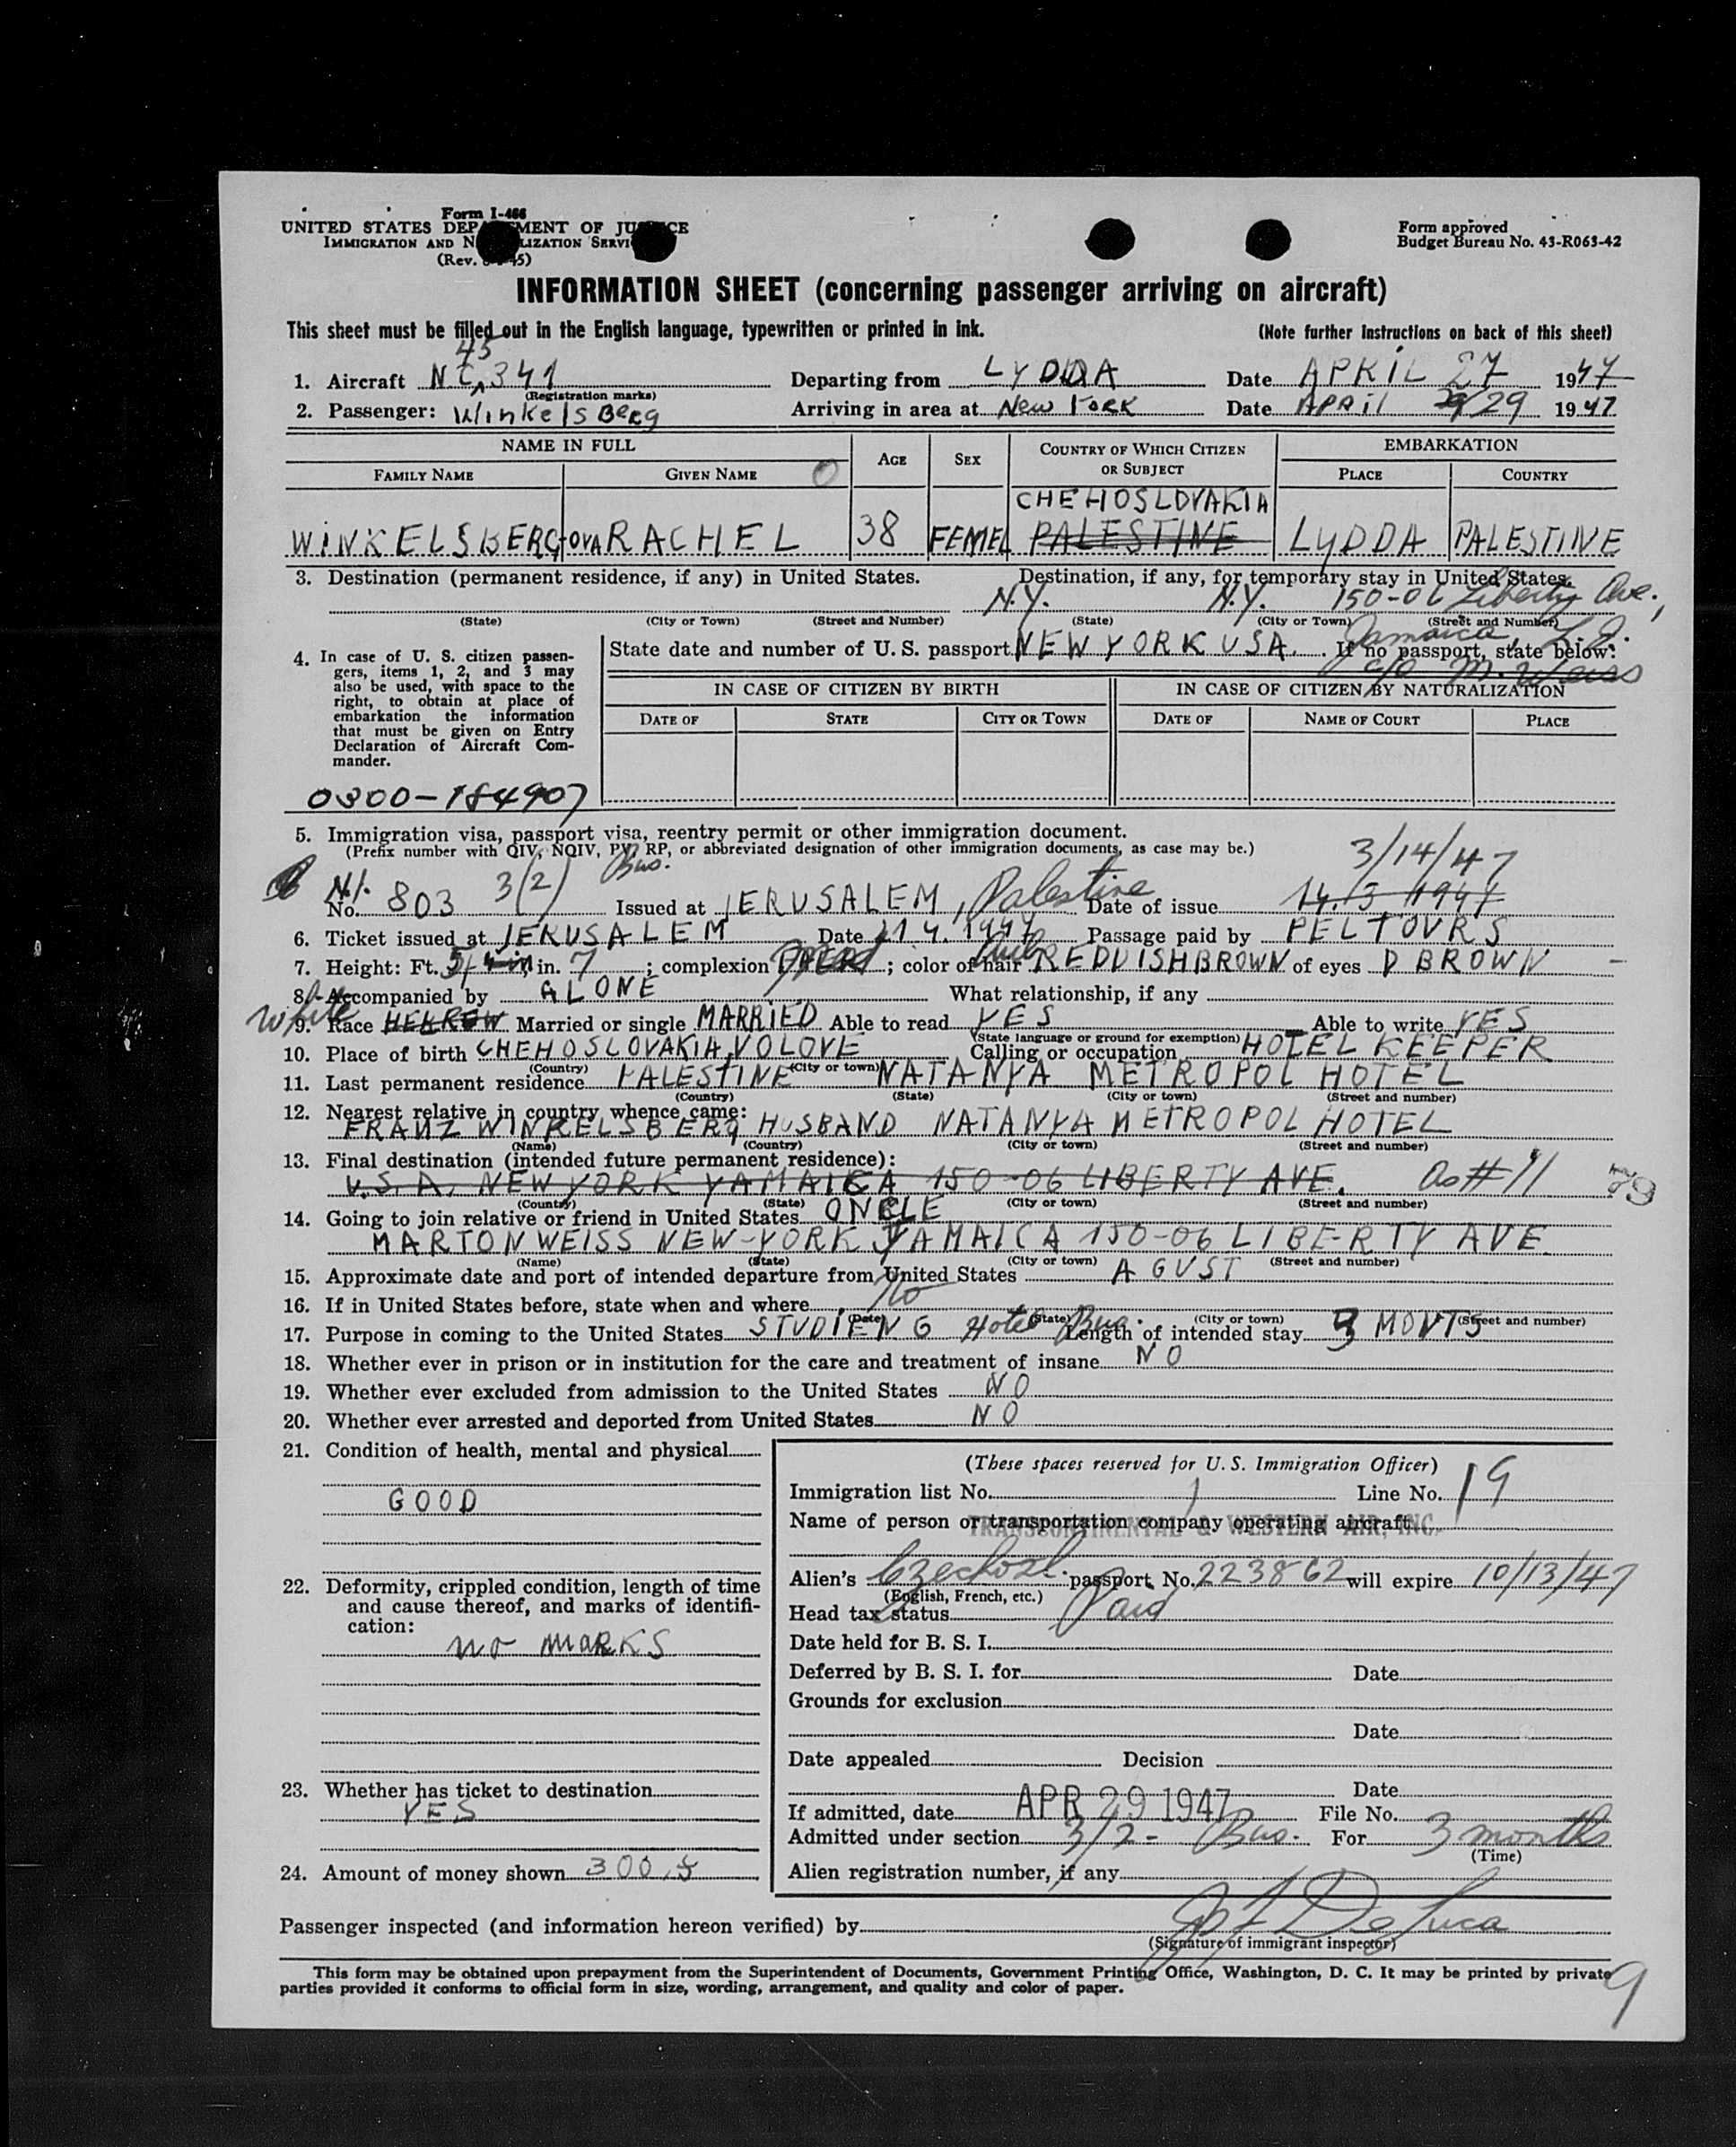 Form I-466
UNITED STATES DEPARTMENT OF JUSTICE
IMMIGRATION AND NATURALIZATION SERVICE
(Rev. 45)
Form approved
Budget Bureau No. 43-R063-42
INFORMATION SHEET (concerning passenger arriving on aircraft)
This sheet must be filled out in the English language, typewritten or printed in ink. (Note further instructions on back of this sheet)
45
1. Aircraft N.C. 341 Departing from LYDDA Date APRIL 27 1947
(Registration marks)
2. Passenger: Winkelsberg Arriving in area at New York Date April 29 1947
NAME IN FULL AGE SEX COUNTRY OF WHICH CITIZEN OR SUBJECT EMBARKATION
FAMILY NAME GIVEN NAME PLACE COUNTRY
CHEHOSLOVAKIA
WINKELSBERGOVA RACHEL 38 FEMEL PALESTINE LYDDA PALESTINE
3. Destination (permanent residence, if any) in United States. Destination, if any, for temporary stay in United States.
N.Y. N.Y. 150-06 Liberty Ave.,
(State) (City or Town) (Street and Number) (State) (City or Town) (Street and Number)
Jamaica, L.I.
State date and number of U. S. passport NEW YORK USA. If no passport, state below:
c/o M. Weiss
4. In case of U. S. citizen passen-
gers, items 1, 2, and 3 may
also be used, with space to the
right, to obtain at place of
embarkation the information
that must be given on Entry
Declaration of Aircraft Com-
mander.
IN CASE OF CITIZEN BY BIRTH IN CASE OF CITIZEN BY NATURALIZATION
DATE OF STATE CITY OR TOWN DATE OF NAME OF COURT PLACE
0300-184907
5. Immigration visa, passport visa, reentry permit or other immigration document.
(Prefix number with QIV, NQIV, PV, RP, or abbreviated designation of other immigration documents, as case may be.)
3/14/47
No. 803 3(2) Bus. Issued at JERUSALEM, Palestine Date of issue 14.3 1947
6. Ticket issued at JERUSALEM Date 21.4.1947 Passage paid by PELTOURS
7. Height: Ft. 5 in. 7; complexion; color of hair REDDISHBROWN of eyes D BROWN
8. Accompanied by ALONE What relationship, if any
white
9. Race HEBREW Married or single MARRIED Able to read YES Able to write YES
(State language or ground for exemption)
10. Place of birth CHEHOSLOVAKIA, VOLOVE Calling or occupation HOTEL KEEPER
(Country) (City or town)
11. Last permanent residence PALESTINE NATANYA METROPOL HOTEL
(Country) (State) (City or town) (Street and number)
12. Nearest relative in country whence came:
FRANZ WINKELSBERG HUSBAND NATANYA METROPOL HOTEL
(Name) (Country) (City or town) (Street and number)
13. Final destination (intended future permanent residence):
U.S.A. NEW YORK YAMAICA 150-06 LIBERTY AVE. As #11
(Country) (State) (City or town) (Street and number)
14. Going to join relative or friend in United States ONCLE
MARTON WEISS NEW-YORK JAMAICA 150-06 LIBERTY AVE.
(Name) (State) (City or town) (Street and number)
15. Approximate date and port of intended departure from United States AGUST
16. If in United States before, state when and where No
(Date) (State) (City or town) (Street and number)
17. Purpose in coming to the United States STUDIENG Hotel Bus. Length of intended stay 3 MONTS
18. Whether ever in prison or in institution for the care and treatment of insane NO
19. Whether ever excluded from admission to the United States NO
20. Whether ever arrested and deported from United States NO
21. Condition of health, mental and physical
GOOD
22. Deformity, crippled condition, length of time
and cause thereof, and marks of identifi-
cation:
no marks
23. Whether has ticket to destination
YES
24. Amount of money shown
(These spaces reserved for U. S. Immigration Officer)
Immigration list No. 1 Line No. 19
Name of person or transportation company operating aircraft
TRANSCONTINENTAL & WESTERN AIR, INC.
Alien's Czechosl. passport No. 223862 will expire 10/13/47
(English, French, etc.)
Head tax status Paid
Date held for B. S. I.
Deferred by B. S. I. for Date
Grounds for exclusion
Date
Date appealed Decision
Date
If admitted, date APR 29 1947 File No.
Admitted under section 3/2- Bus. For 3 months
(Time)
Alien registration number, if any
Passenger inspected (and information hereon verified) by De Luca
(Signature of immigrant inspector)
This form may be obtained upon prepayment from the Superintendent of Documents, Government Printing Office, Washington, D. C. It may be printed by private
parties provided it conforms to official form in size, wording, arrangement, and quality and color of paper.
9